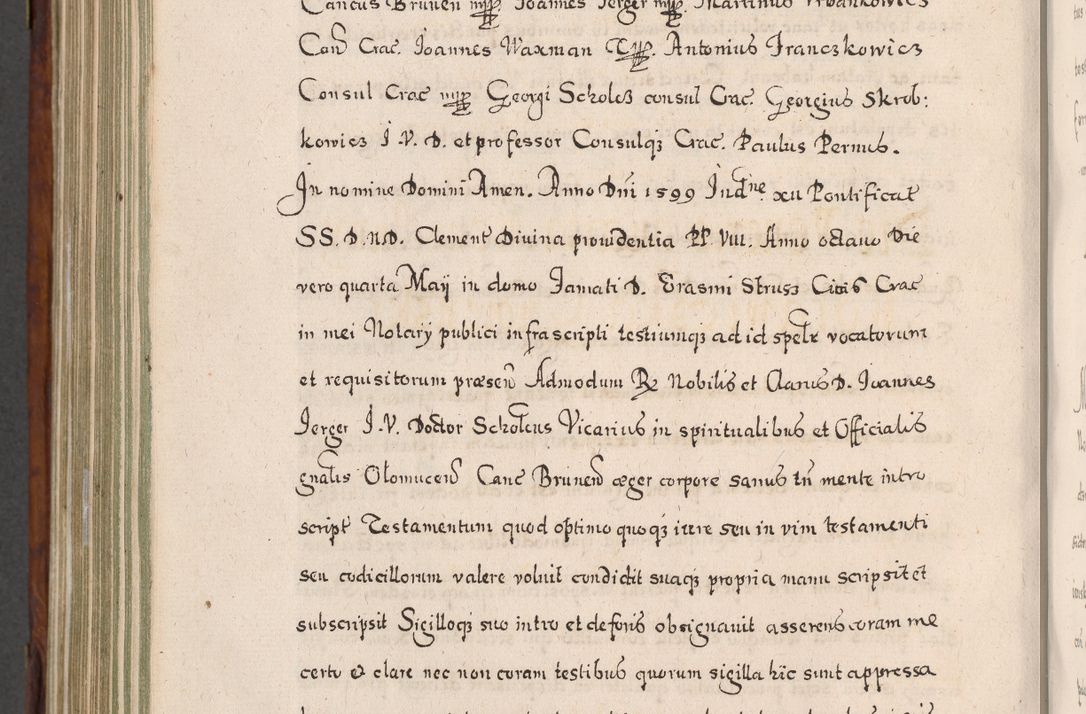 Cancus Brunen mpp Joannes Jerger mpp Martinus Vrbankowics
Con Crac. Joannes Waxman mpp. Antonius Franczkowicz
Consul Crac mpp Georgi Scholcz consul Crac. Georgius Skrob:
kowicz J.V.D. et professor Consulq; Crac. Paulus Pernus.
In nomine Domini Amen. Anno Dni 1599 Indne xii Pontificat
SS.D.N.D. Clement Divina providentia PP. VIII. Anno octavo Die
vero quarta Maij in domo Famati D. Erasmi Strusz Citis Crac
in mei Notarij publici infrascripti testiumq; ad id spetr vocatorum
et requisitorum præsen Admodum R Nobilis et Clarus D. Joannes
Jerger J.V. Doctor Scholcus Vicarius in spiritualibus et Officialis
gnalis Olomucen Canc Brunen æger corpore sanus tn mente intro
script Testamentum quod optimo quoq; iure seu in vim testamenti
seu codicillorum valere voluit condidit suaq; propria manu scripsit et
subscripsit Sigilloq; suo intro et deforis obsignauit asserens coram me
certo & clare nec non coram testibus quorum sigilla hic sunt appressa